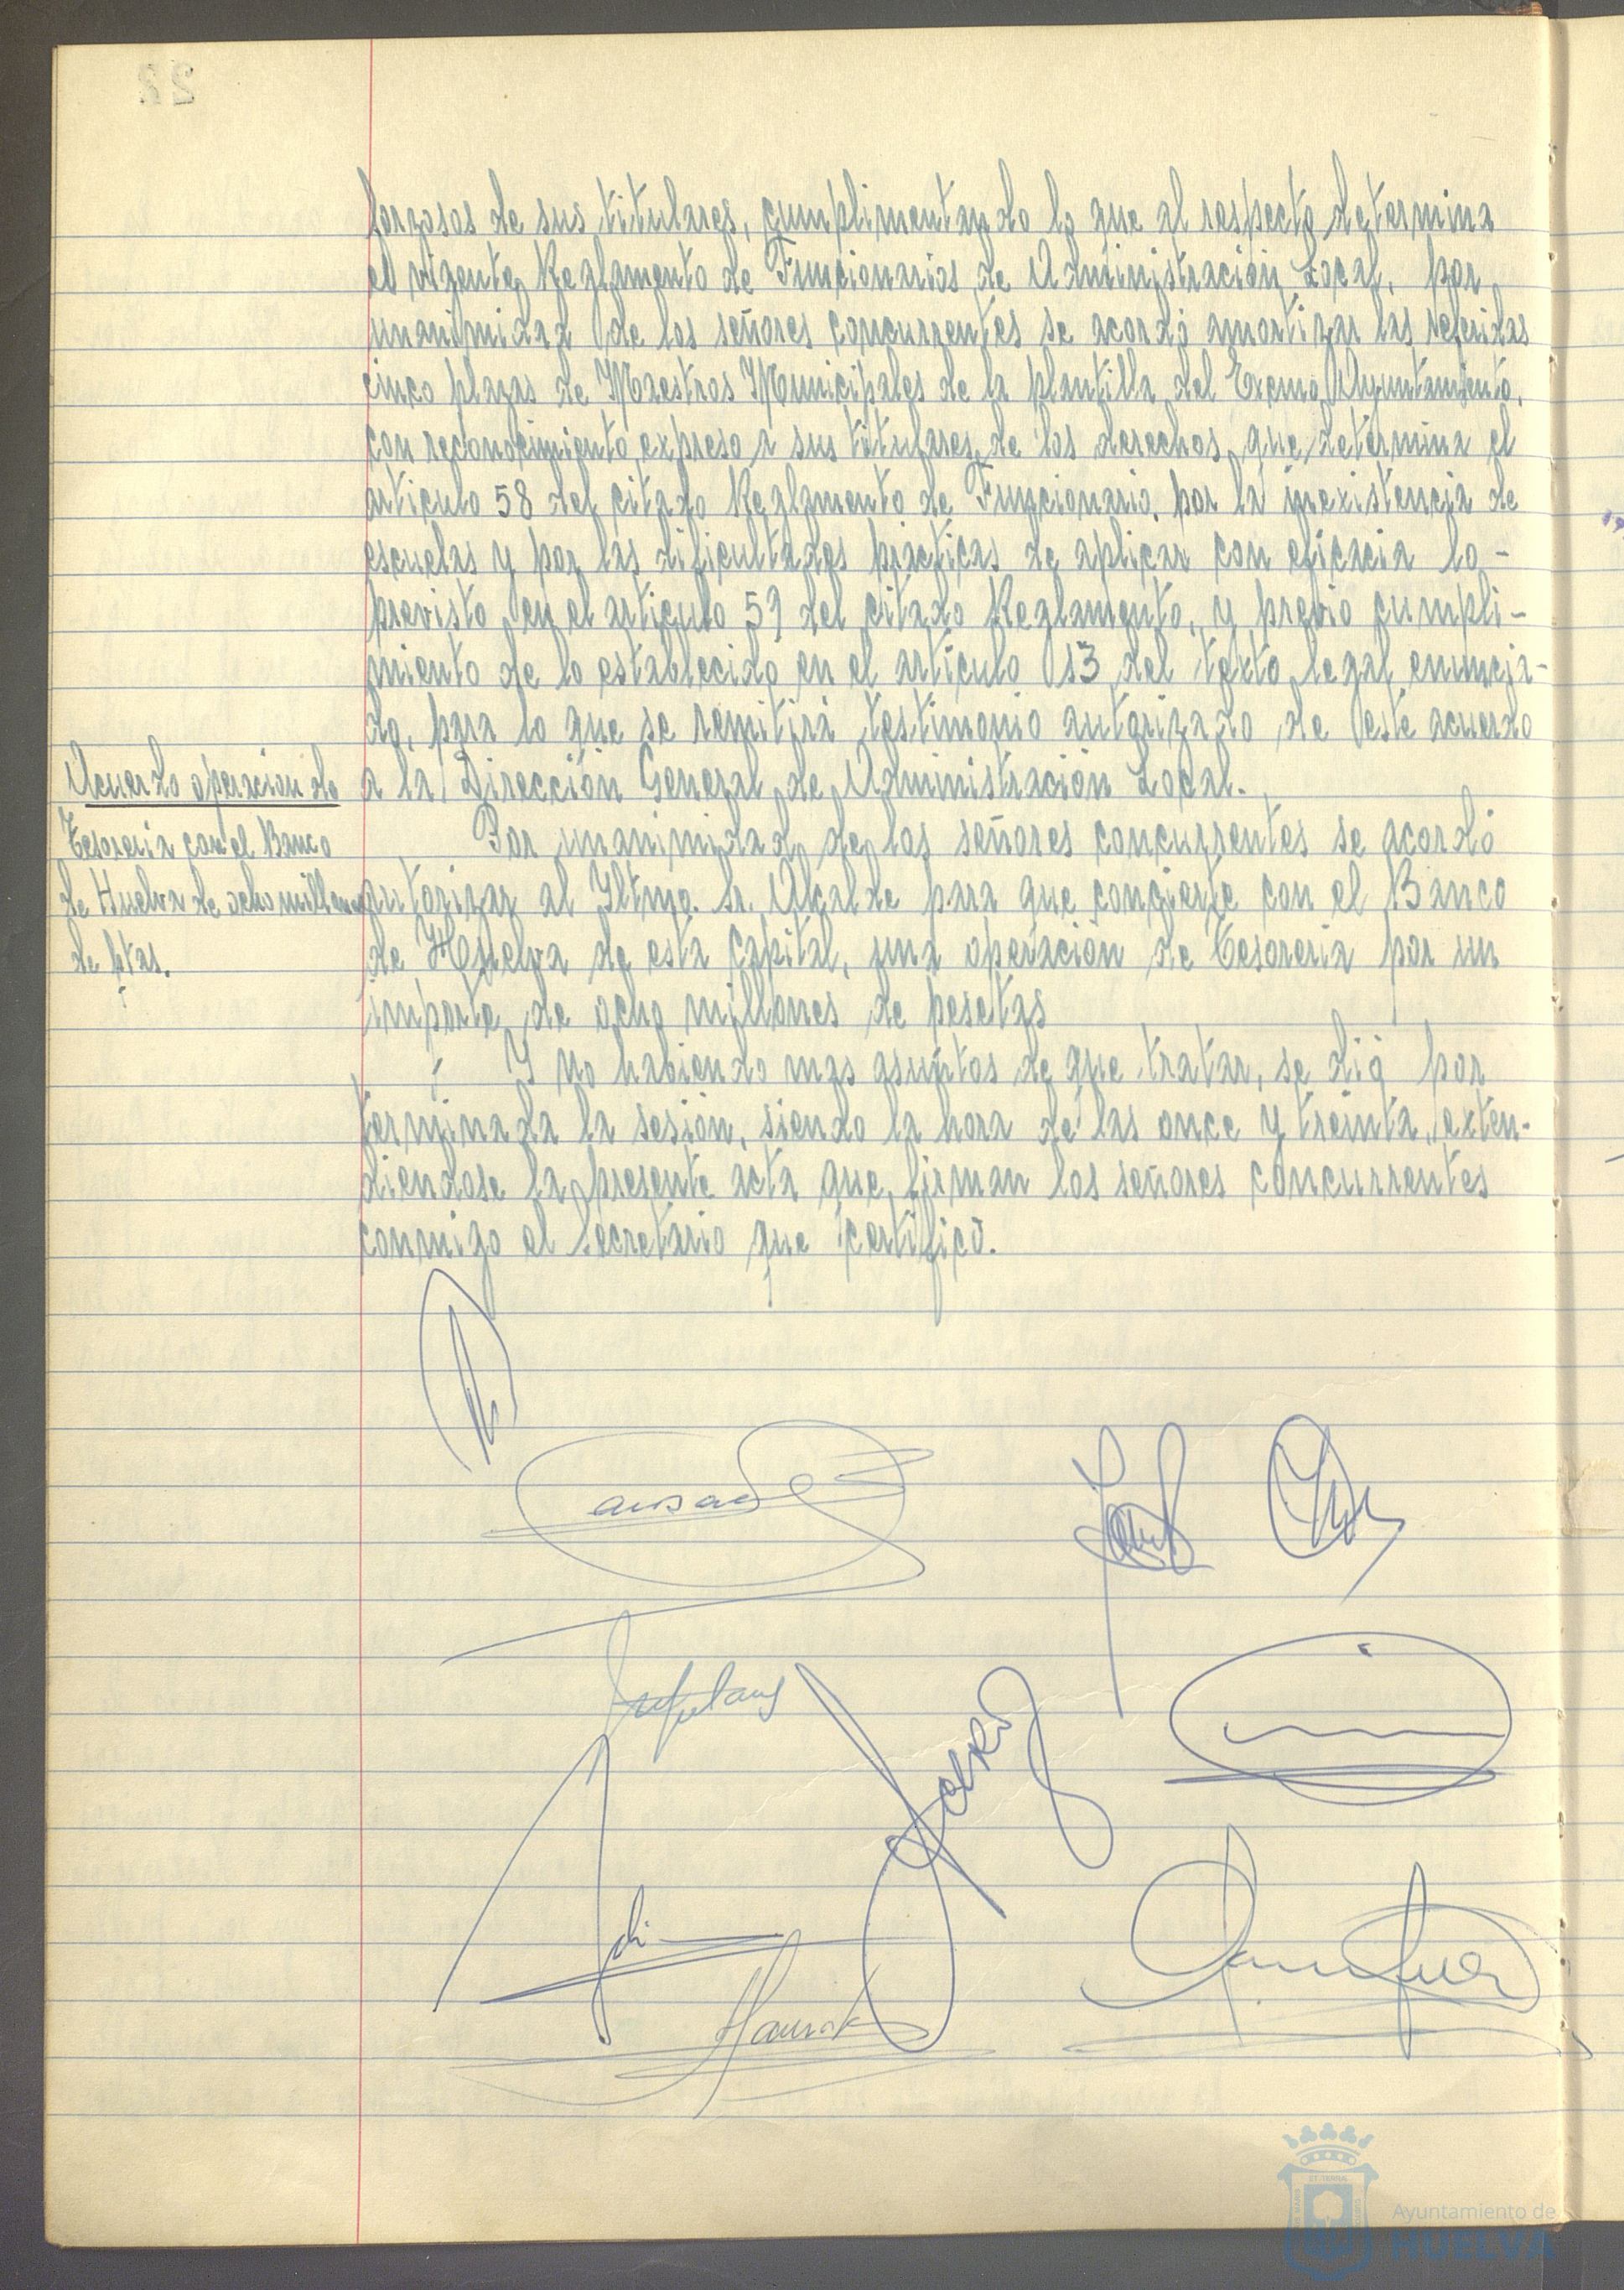 forzosos de sus titulares, cumplimentando lo que al respecto determina
el vigente Reglamento de Funcionarios de Administración Local, por
unanimidad de los señores concurrentes se acordó amortizar las referidas
cinco plazas de Maestros Municipales de la plantilla del Excmo Ayuntamiento,
con reconocimiento expreso a sus titulares de los derechos que determina el
articulo 58 del citado Reglamento de Funcionario, por la inexistencia de
escuelas y por las dificultades prácticas de aplicar con eficacia lo -
previsto en el articulo 59 del citado Reglamento, y previo cumpli-
miento de lo establecido en el artículo 13 del texto legal enuncia-
do, para lo que se remitirá testimonio autorizado de este acuerdo
a la Dirección General de Administración Local.
Acuerdo operacion de
Tesoreria con el Banco
de Huelva de ocho millones
de ptas.
Por unanimidad de los señores concurrentes se acordó
autorizar al Iltmo. Sr. Alcalde para que concierte con el Banco
de Huelva de esta Capital, una operación de Tesoreria por un
importe de ocho millones de pesetas
Y no habiendo mas asuntos de que tratar, se dió por
terminada la sesión, siendo la hora de las once y treinta, exten-
diendose la presente acta que firman los señores concurrentes
conmigo el Secretario que certifico.
Ayuntamiento de
HUELVA